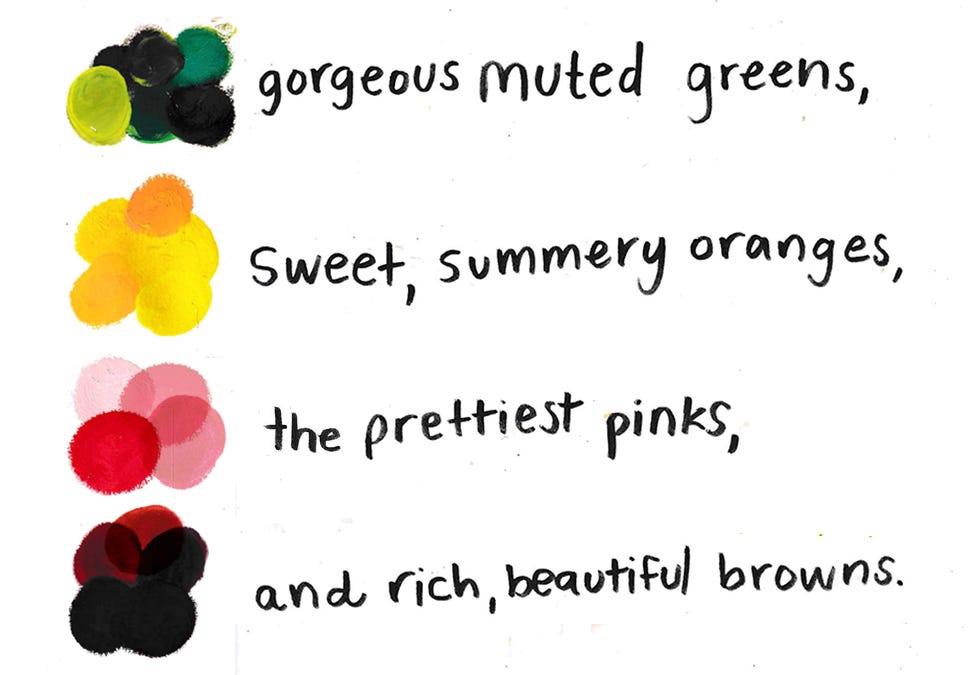 gorgeous muted greens,
Sweet, summery oranges,
the prettiest pinks,
and rich, beautiful browns.